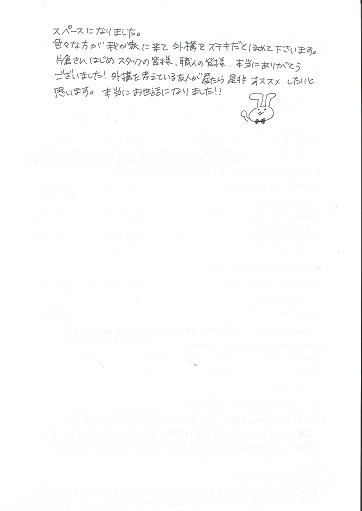 スペースになりました。
色々な方が我が家に来て外構をステキだとほめて下さいます。
片倉さんはじめスタッフの皆様、職人の皆様、本当にありがとう
ございました!外構を考えている友人が居たら是非オススメしたいと
思います。本当にお世話になりました!!